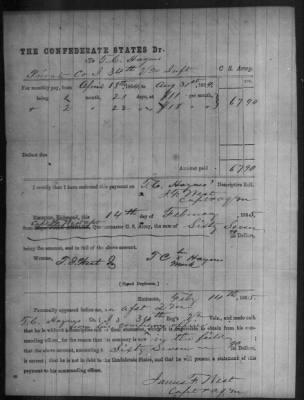 THE CONFEDERATE STATES Dr.
To T. C. Haynes
Private Co. I 34th Va Inft C. S. Army.
For monthly pay, from April 13th 1864, to Aug 31st 1864,
being 2 month, 23 days, at $11 per month,
2 " 22 " " $18 "
67.90
Deduct due
Amount paid 67.90
I certify that I have endorsed this payment on T. C. Haynes' Descriptive Roll.
J. F. West
Capt & qm
Richmond, this 14th day of February 1865,
Quartermaster C. S. Army, the sum of Sixty Seven
Dollars,
being the amount, and in full of the above account.
Witness,
T. C. Haynes
mark
[Signed Duplicates.]
Richmond, Feby 14th 1865.
Personally appeared before me
T. C. Haynes Co. I 34th Reg't Va Vols., and made oath
that he is without a
commanding officer, for the reason that his company is now in the field
that the above account, amounting to Sixty Seven
Dollars,
is correct; that he is not in debt to the Confederate States, and that he will present a statement of
this payment to his commanding officer.
James F. West
Capt & qm